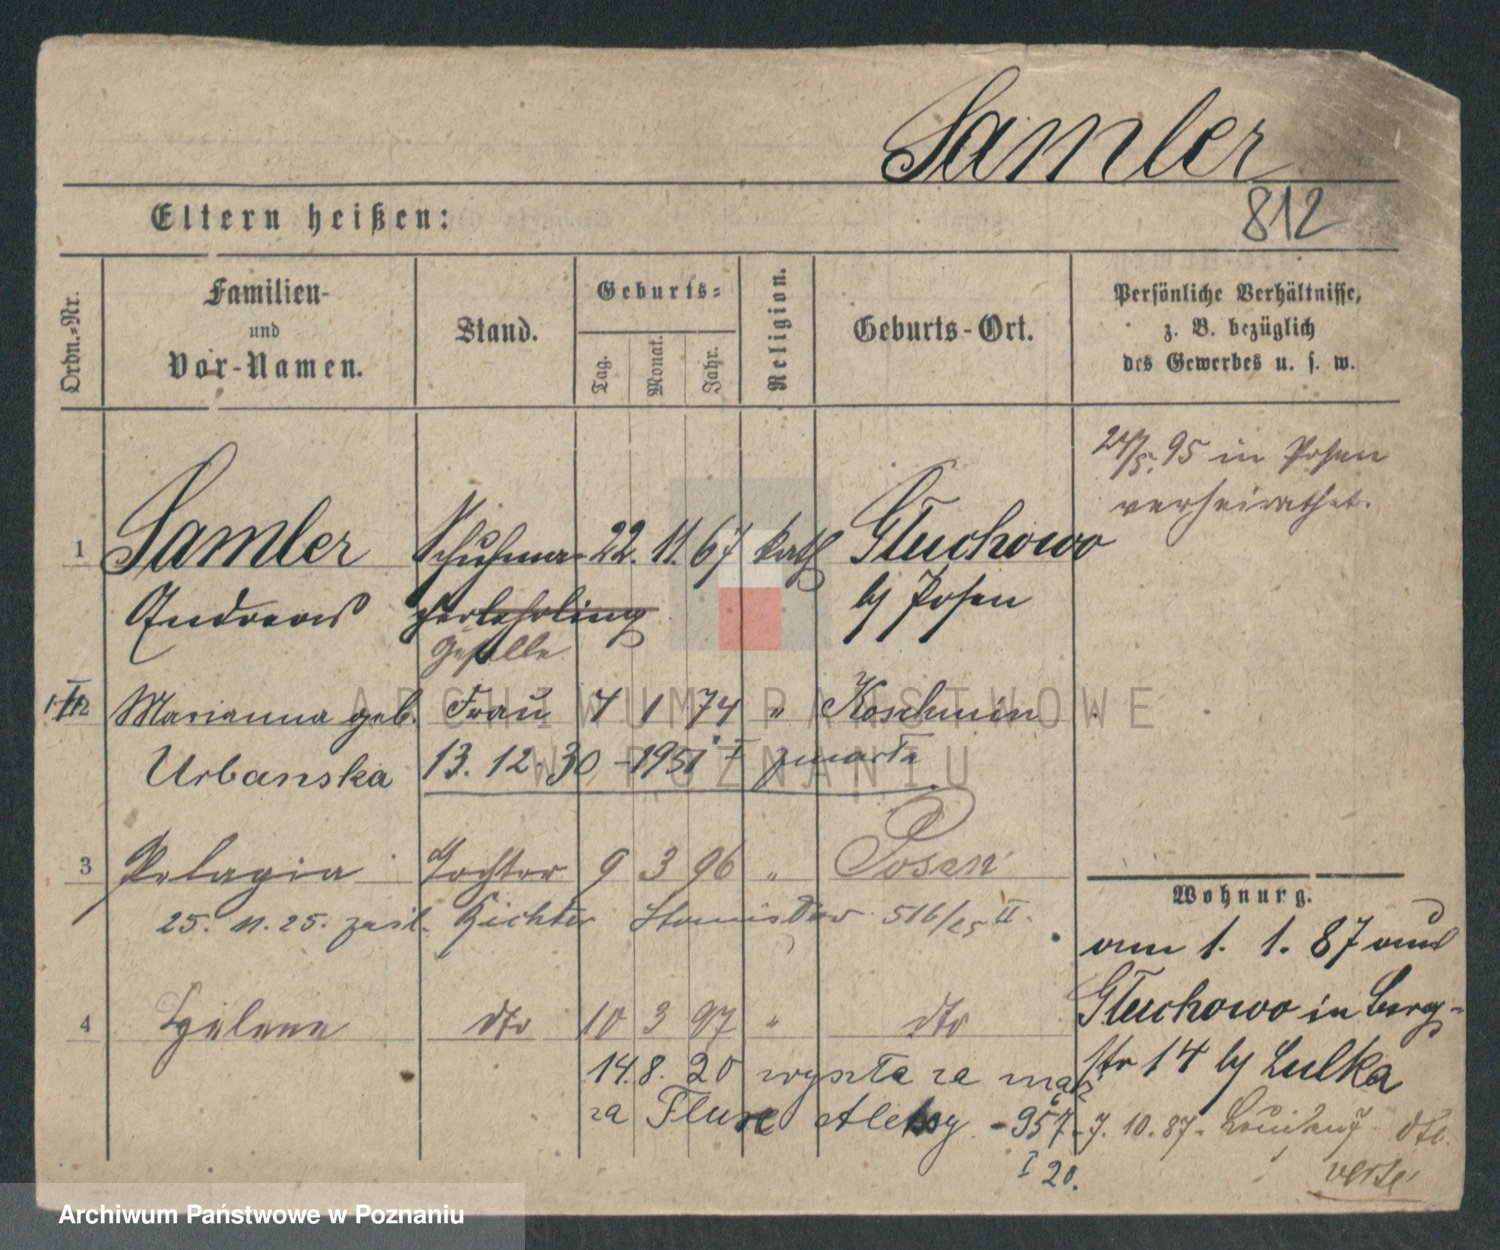 Samler
812
Eltern heißen:
Ordn.-Nr.
Familien-
und
Vor-Namen.
Stand.
Geburts-
Tag.
Monat.
Jahr.
Religion.
Geburts-Ort.
Persönliche Verhältnisse,
z. B. bezüglich
des Gewerbes u. s. w.
24/5. 95 in Posen
verheirathet.
1 Samler Schuhma- 22. 11. 67 kath Głuchowo
Andreas cherlehrling b/ Posen
Geselle
Marianna geb. Frau 7 1 74 " Koschmin
Urbanska 13. 12. 30 - 1951 I zmarła
3 Pelagia Tochter 9 3 96 " Posen
25. 11. 25. Richter Stanisław 516/25 II.
4 Helene dto 10 3 97 " dto
14. 8. 20 wyszła za mąż
za Aleksy - 957
I 20.
Wohnung.
am 1. 1. 87 aus
Głuchowo in Berg-
str 14 b/ Lulka
7. 10. 87.
verte
ARCHIWUM PAŃSTWOWE
W POZNANIU
Archiwum Państwowe w Poznaniu